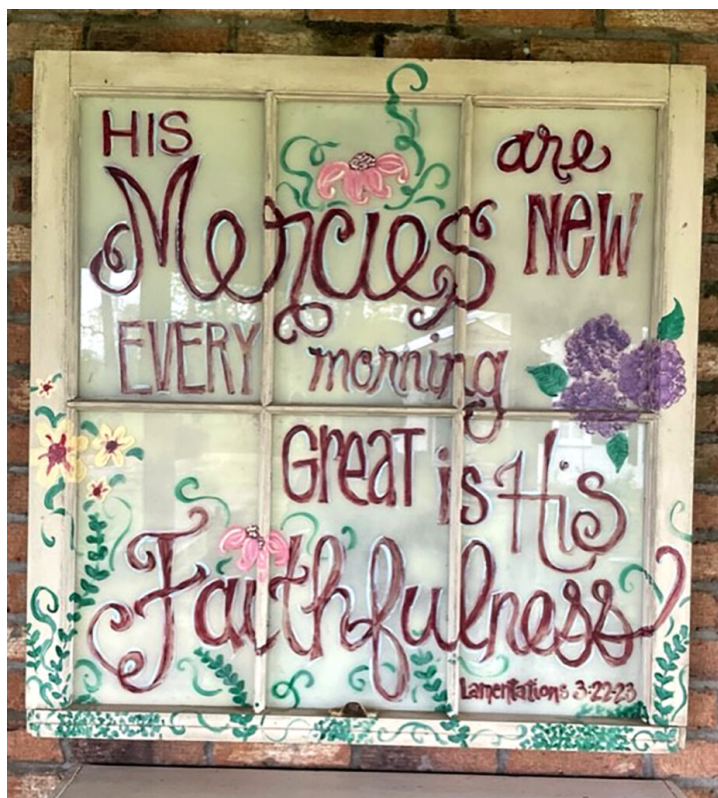 HIS are
Mercies NEW
EVERY morning
Great is His
Faithfulness
Lamentations 3:22-23